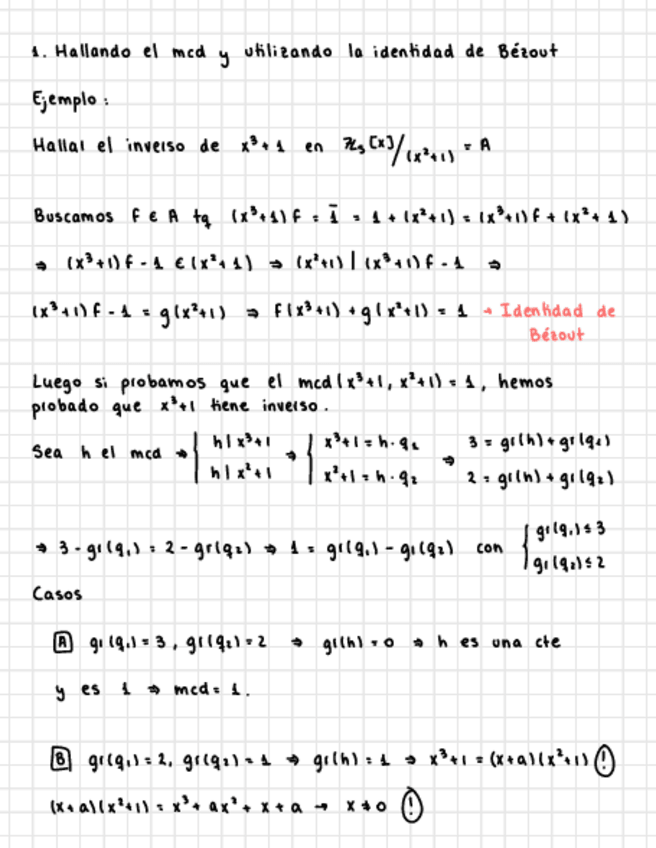 1. Hallando el mcd y utilizando la identidad de Bézout
Ejemplo:
Hallar el inverso de x³+1 en ℤ₃[x]/(x²+1) = A
Buscamos f ∈ A tq (x³+1)f = 1̄ = 1 + (x²+1) = (x³+1)f + (x²+1)
⇒ (x³+1)f - 1 ∈ (x²+1) ⇒ (x²+1) | (x³+1)f - 1 ⇒
(x³+1)f - 1 = g(x²+1) ⇒ f(x³+1) + g(x²+1) = 1 → Identidad de
Bézout
Luego si probamos que el mcd(x³+1, x²+1) = 1, hemos
probado que x³+1 tiene inverso.
Sea h el mcd ⇒ { h | x³+1 ⇒ { x³+1 = h · q₁ ⇒ 3 = gr(h) + gr(q₁)
h | x²+1 x²+1 = h · q₂ 2 = gr(h) + gr(q₂)
⇒ 3 - gr(q₁) = 2 - gr(q₂) ⇒ 1 = gr(q₁) - gr(q₂) con { gr(q₁) ≤ 3
gr(q₂) ≤ 2
Casos
A gr(q₁) = 3, gr(q₂) = 2 ⇒ gr(h) = 0 ⇒ h es una cte
y es 1 ⇒ mcd = 1.
B gr(q₁) = 2, gr(q₂) = 1 ⇒ gr(h) = 1 ⇒ x³+1 = (x+a)(x²+1) !
(x+a)(x²+1) = x³ + ax² + x + a → x ≠ 0 !